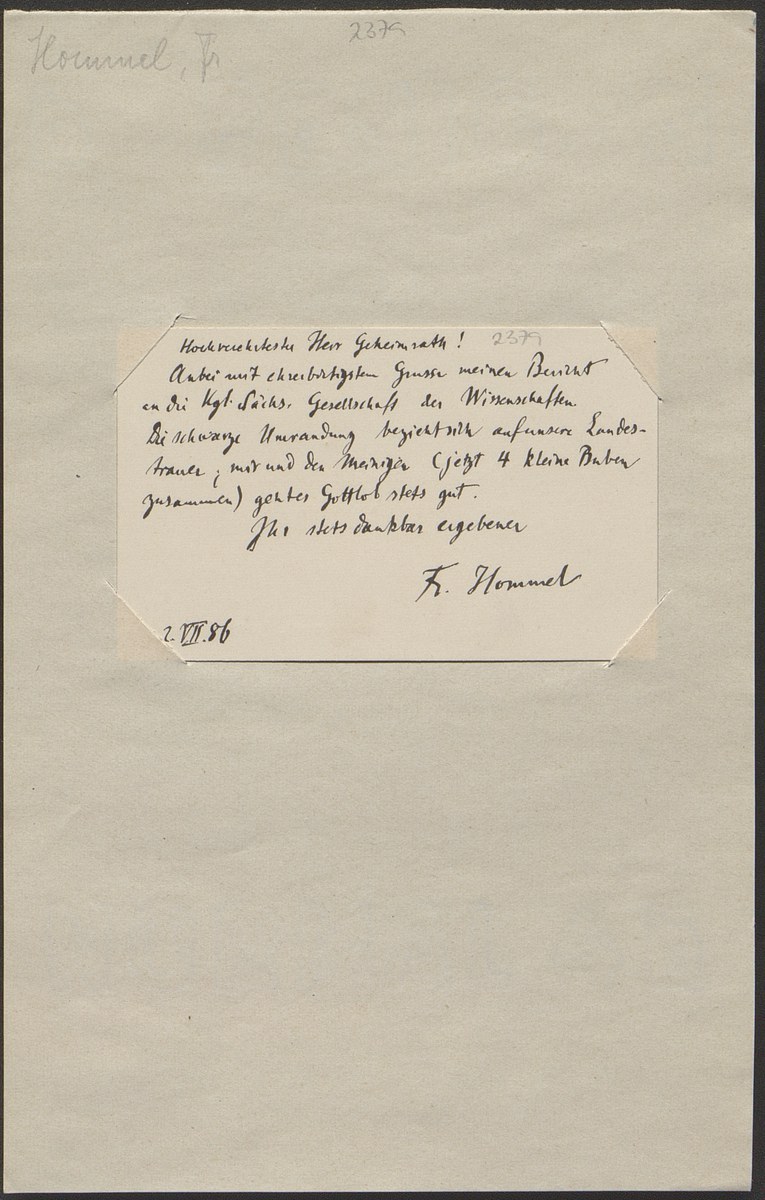 Hommel, Fr
2379
Hochverehrtester Herr Geheimrath! 2379
Anbei mit ehrerbietigstem Grusse meinen Bericht
an die Kgl. Sächs. Gesellschaft der Wissenschaften.
Die schwarze Umrandung bezieht sich auf unsere Landes-
trauer; mir und den Meinigen (jetzt 4 kleine Buben
zusammen) geht es Gottlob stets gut.
Ihr stets dankbar ergebener
Fr. Hommel
2.VII.86